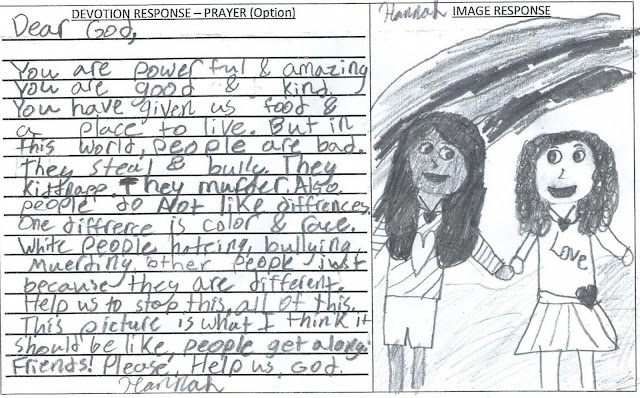 DEVOTION RESPONSE – PRAYER (Option)
Dear God,
You are powerful & amazing
you are good & kind.
You have given us food &
a place to live. But in
this world, people are bad.
They steal & bully. They
kidnapp They murder. Also
people do Not like diffrences.
One diffrence is color & race.
White people hateing, bullying,
muerding other people just
because they are different.
Help us to stop this, all of this.
This picture is what I think it
should be like, people get along.
Friends! Please, Help us, God.
Hannah
Hannah IMAGE RESPONSE
Love